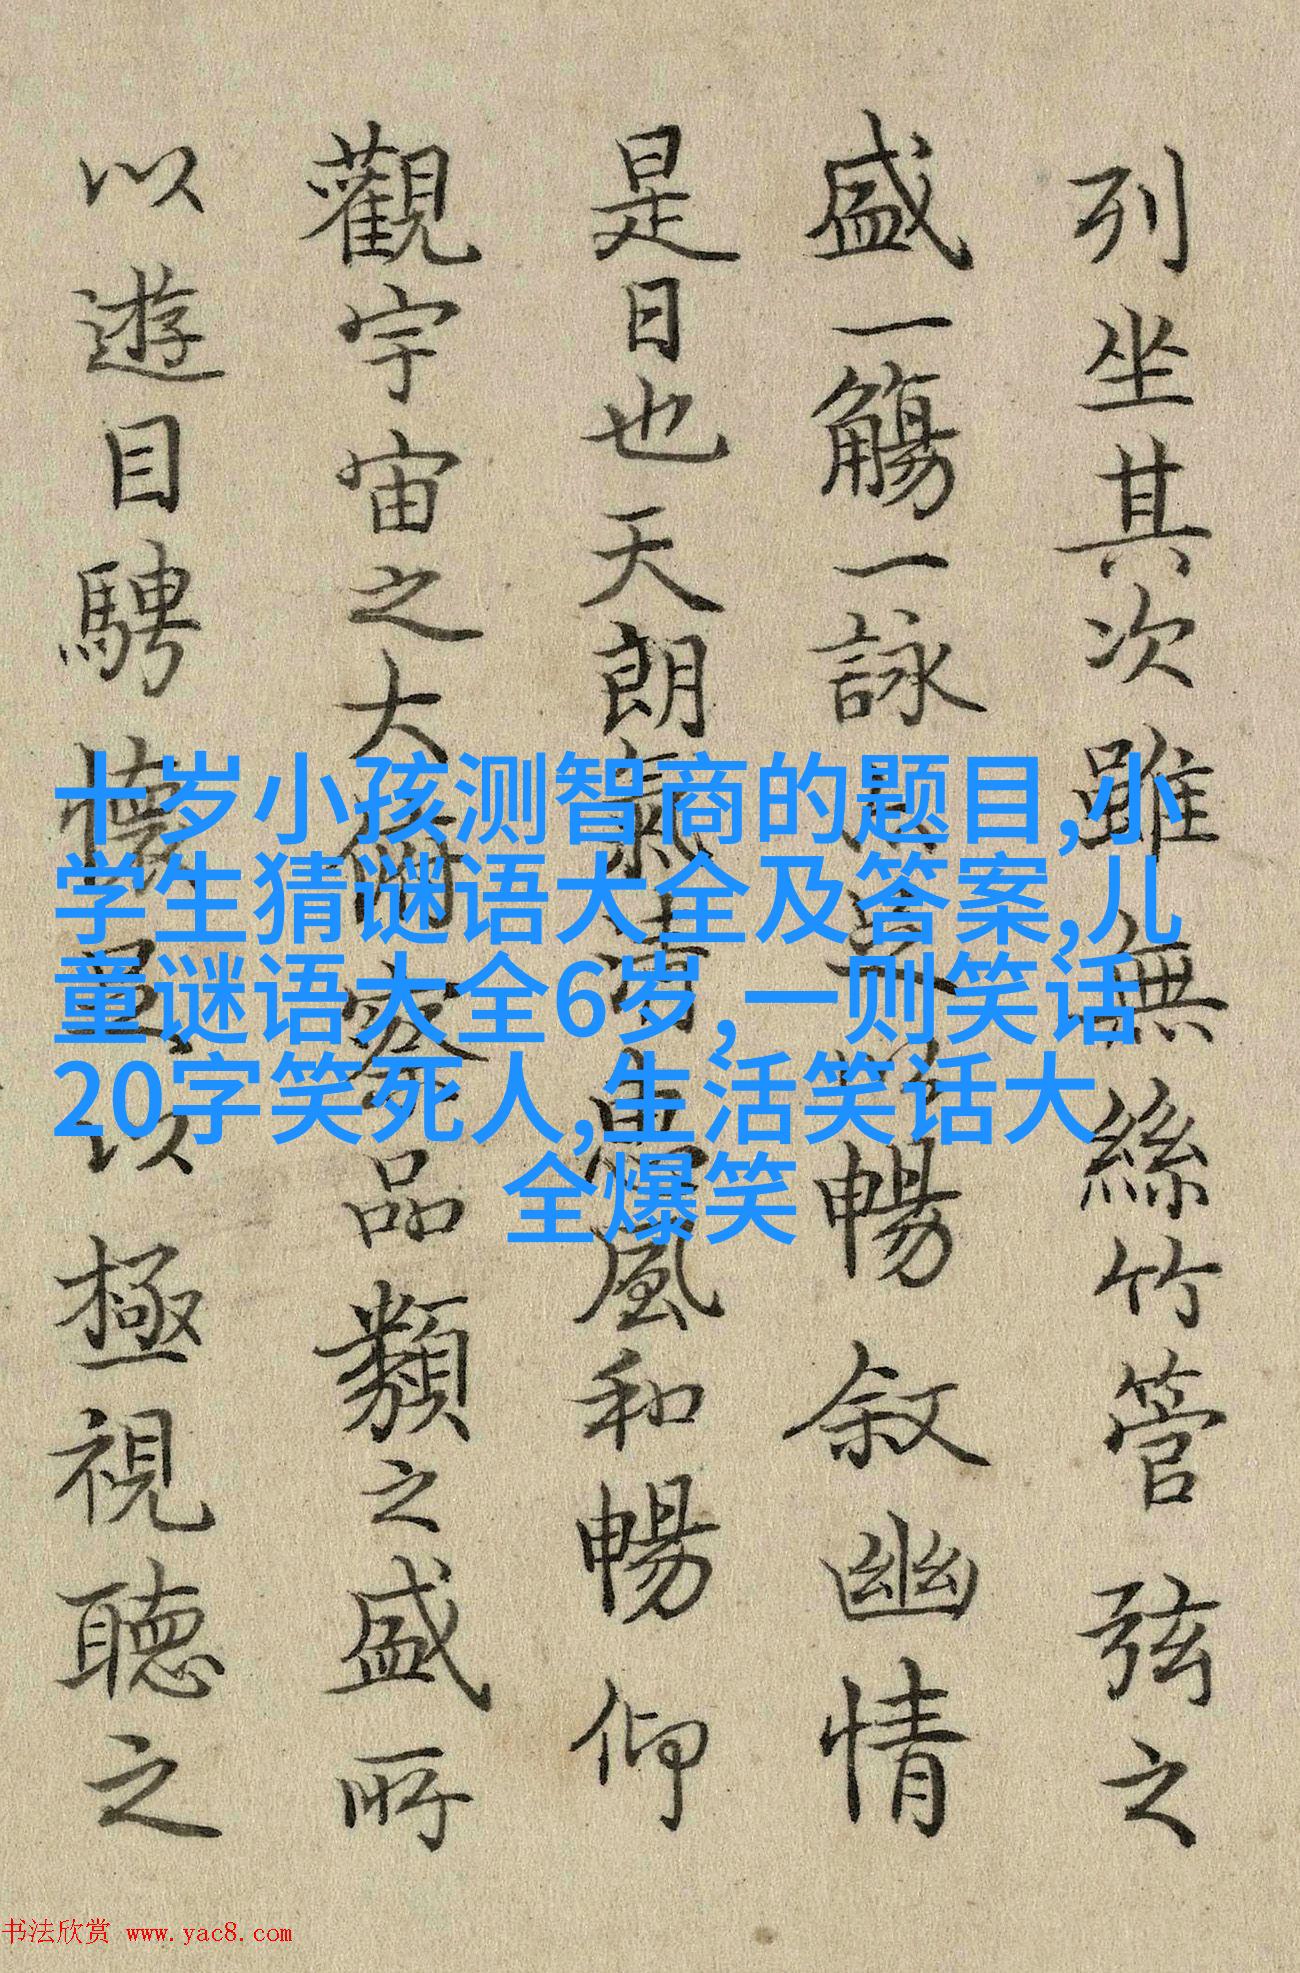 列坐其次雖無絲竹管弦之
盛一觴一詠亦足以暢叙幽情
是日也天朗氣清惠風和暢仰
觀宇宙之大俯察品類之盛所
以遊目騁懷足以極視聽之
十岁小孩测智商的题目,小
学生猜谜语大全及答案,儿
童谜语大全6岁, 一则笑话
20字笑死人,生活笑话大
全爆笑
书法欣赏 www.yac8.com